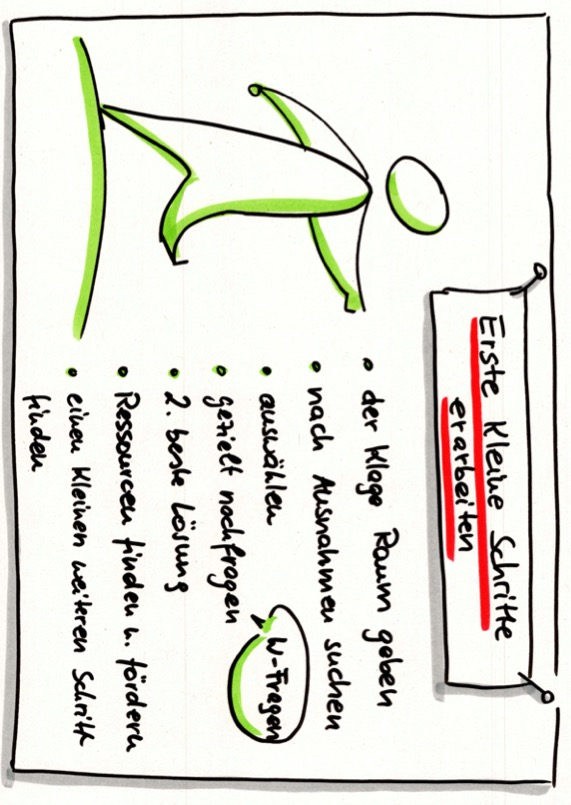 Erste Kleine Schritte
erarbeiten
• der Klage Raum geben
• nach Ausnahmen suchen
• auswählen
W-Fragen
• gezielt nachfragen
• 2. beste Lösung
• Ressourcen finden u. fördern
• einen kleinen weiteren Schritt
finden